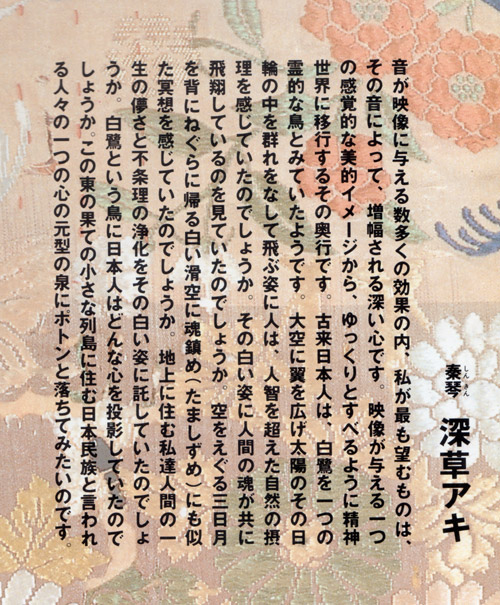 秦琴 深草アキ
しんきん
音が映像に与える数多くの効果の内、私が最も望むものは、
その音によって、増幅される深い心です。映像が与える一つ
の感覚的な美的イメージから、ゆっくりとすべるように精神
世界に移行するその奥行です。古来日本人は、白鷺を一つの
霊的な鳥とみていたようです。大空に翼を広げ太陽のその日
輪の中を群れをなして飛ぶ姿に人は、人智を超えた自然の摂
理を感じていたのでしょうか。その白い姿に人間の魂が共に
飛翔しているのを見ていたのでしょうか。空をえぐる三日月
を背にねぐらに帰る白い滑空に魂鎮め(たましずめ)にも似
た冥想を感じていたのでしょうか。地上に住む私達人間の一
生の儚さと不条理の浄化をその白い姿に託していたのでしょ
うか。白鷺という鳥に日本人はどんな心を投影していたので
しょうか。この東の果ての小さな列島に住む日本民族と言われ
る人々の一つの心の元型の泉にポトンと落ちてみたいのです。